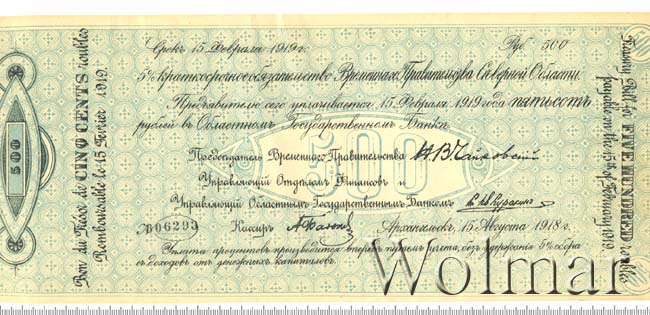 Срокъ 15 Февраля 1919 г. Руб. 500
5% краткосрочное обязательство Временнаго Правительства Сѣверной Области.
Предъявителю сего уплачивается 15 Февраля 1919 года пятьсотъ
рублей въ Областномъ Государственномъ Банкѣ.
Предсѣдатель Временнаго Правительства Н. В. Чайковскій
Управляющій Отдѣломъ Финансовъ и
Управляющій Областнымъ Государственнымъ Банкомъ
06293 Кассиръ Архангельскъ, 15 Августа 1918 г.
Уплата процентовъ производится впередъ, путемъ учета, безъ удержанія 5% сбора
съ доходовъ отъ денежныхъ капиталовъ.
500
500
Bon du Trésor de CINQ CENTS roubles
Remboursable le 15 Février 1919.
Treasury Bill for FIVE HUNDRED roubles
payable on the 15th of February 1919
Wolmar